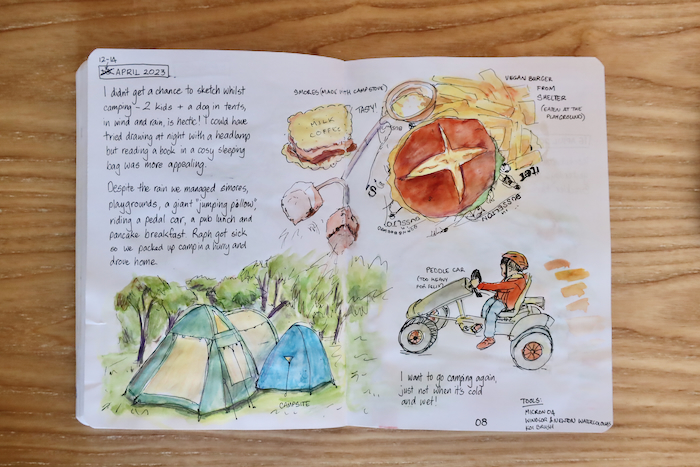 12-14
APRIL 2023
I didn't get a chance to sketch whilst
camping - 2 kids + a dog in tents,
in wind and rain, is hectic! I could have
tried drawing at night with a headlamp
but reading a book in a cosy sleeping
bag was more appealing.
Despite the rain we managed smores,
playgrounds, a giant "jumping pillow",
riding a pedal car, a pub lunch and
pancake breakfast. Raph got sick
so we packed up camp in a hurry and
drove home.
CAMPSITE
SMORES (MADE WITH CAMP STOVE)
TASTY!
MILK
COFFEE
VEGAN BURGER
FROM
SHELTER
(EATEN AT THE
PLAYGROUND)
BUSSELTO
PEDDLE CAR
(TOO HEAVY
FOR
I want to go camping again,
just not when it's cold
and wet!
08
TOOLS:
MICRON 04
WINDSOR & NEWTON WATERCOLOURS
KOI BRUSH